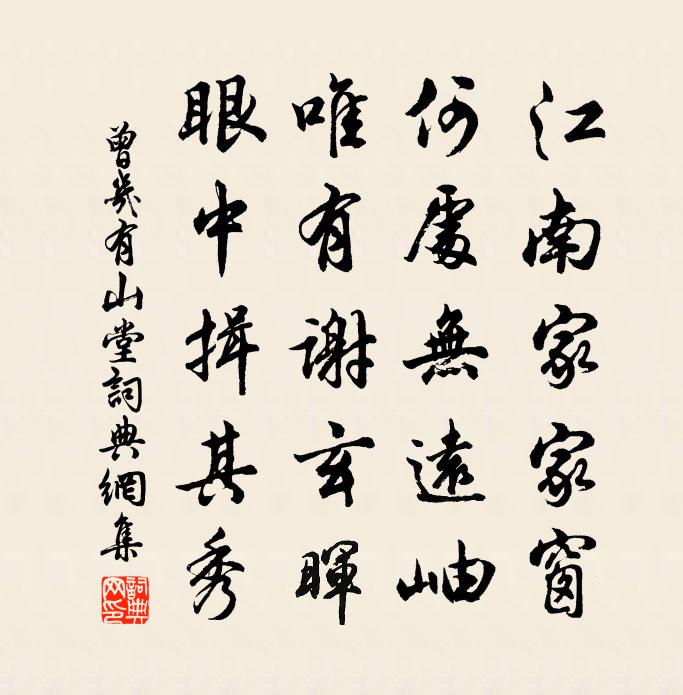 江南家家窗
何處無遠岫
唯有謝玄暉
眼中揖其秀
曾幾有山堂詞典網集
詞典網印